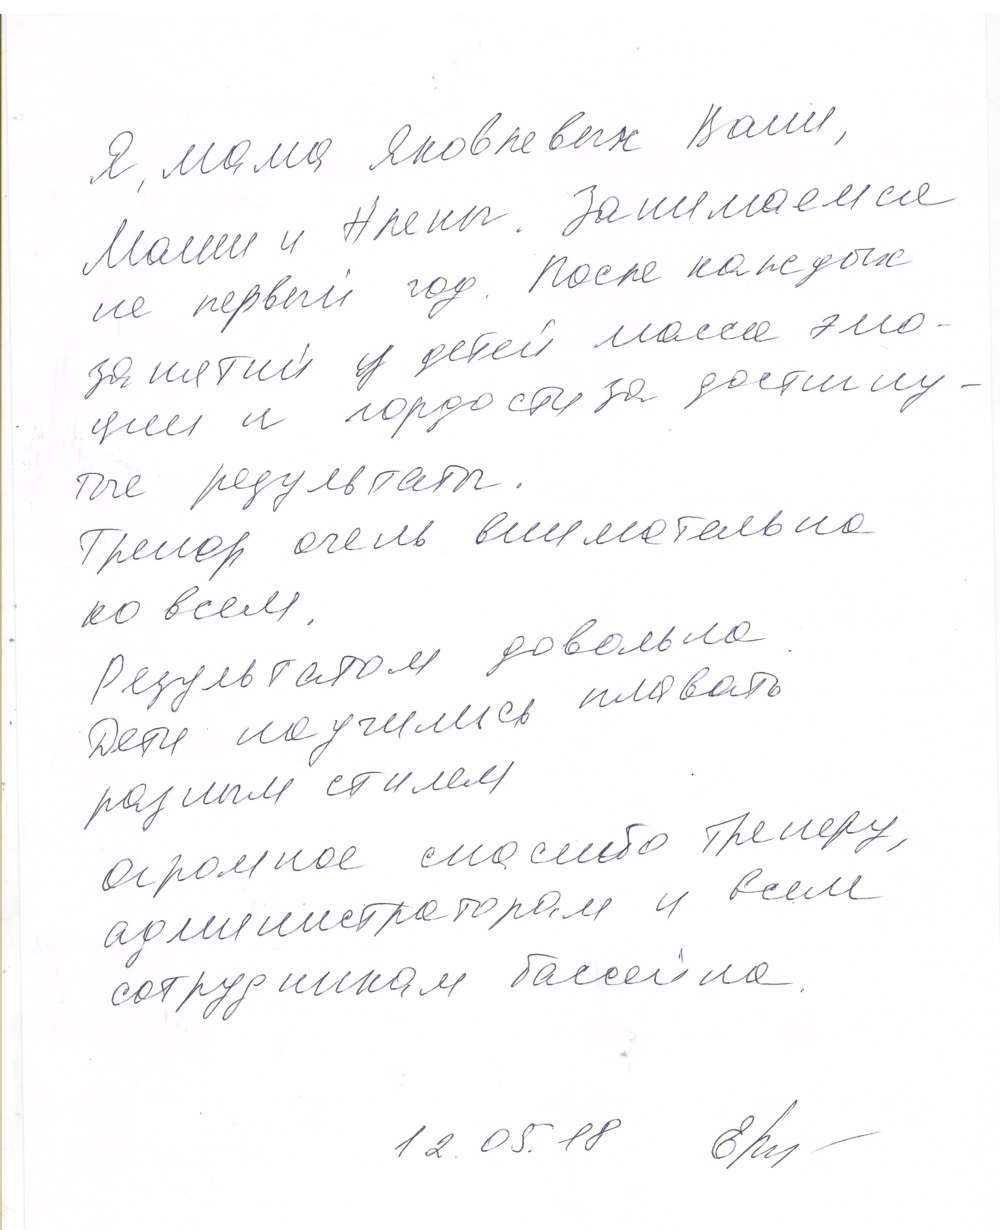 Я, мама Яковлевых Вани,
Маши и Ирены. Занимаемся
не первый год. После каждых
занятий у детей масса эмо-
ции и гордости за достигну-
тые результаты.
Тренер очень внимательна
ко всем.
Результатом довольна.
Дети научились плавать
разным стилем
Огромное спасибо тренеру,
администраторам и всем
сотрудникам бассейна.
12.05.18